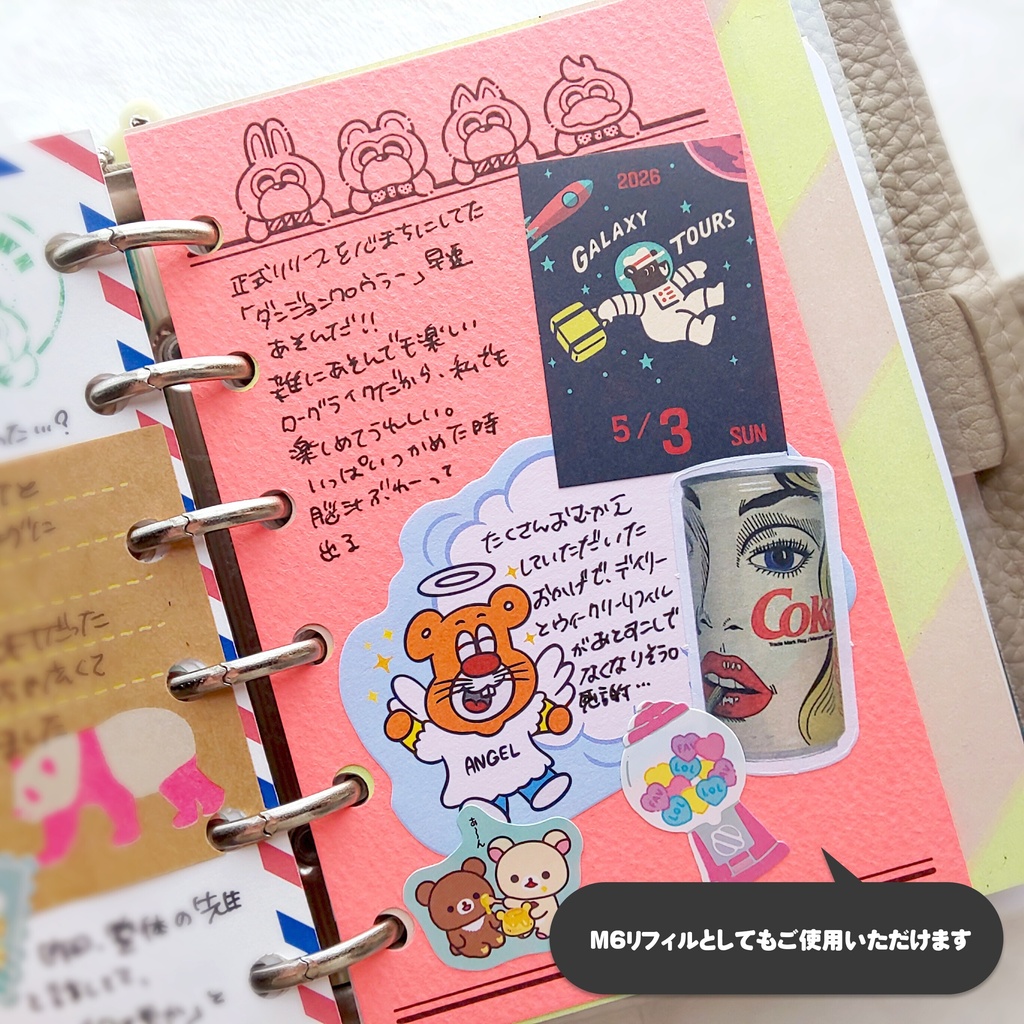 正式リリースを心まちにしてた
「ダンジョンクロウラー」早速
あそんだ!!
誰にあそんでも楽しい
ローグライクだから、私でも
楽しめてうれしい。
いっぱいつかめた時
脳汁ぶわーって
出る
2026
GALAXY
TOURS
5/3 SUN
たくさんおむかえ
していただいた
おかげで、デイリー
とウィークリーリフィル
があとすこしで
なくなりそう。
感謝…
ANGEL
Coke
Trade Mark Reg.
FAV
LOL
FAV
LOL
LOL
あーん
った…?
と
だった
くて
ました
整体の先生
と話してて、
と
M6リフィルとしてもご使用いただけます